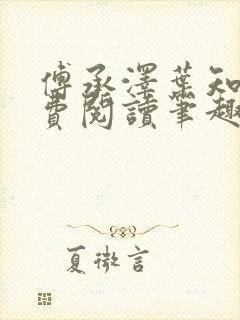 傅承澤葉知
費閱讀筆趣
夏微言